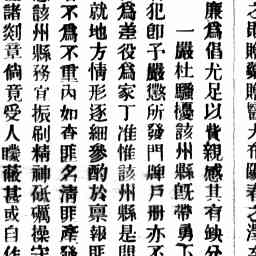 廉爲倡尤足以費親感其有欽分
一嚴杜騷擾該州縣旣帶勇下
犯卽予嚴懲所發門牌戶册亦不
爲差役爲家丁准惟該州縣是問
就地方情形逐細參酌於稟報匪
不爲不重內如杳匪名清匪產發
該州縣務宜振刷精神砥礪操守
諸剡章倘竟受人矇蔽甚或自作